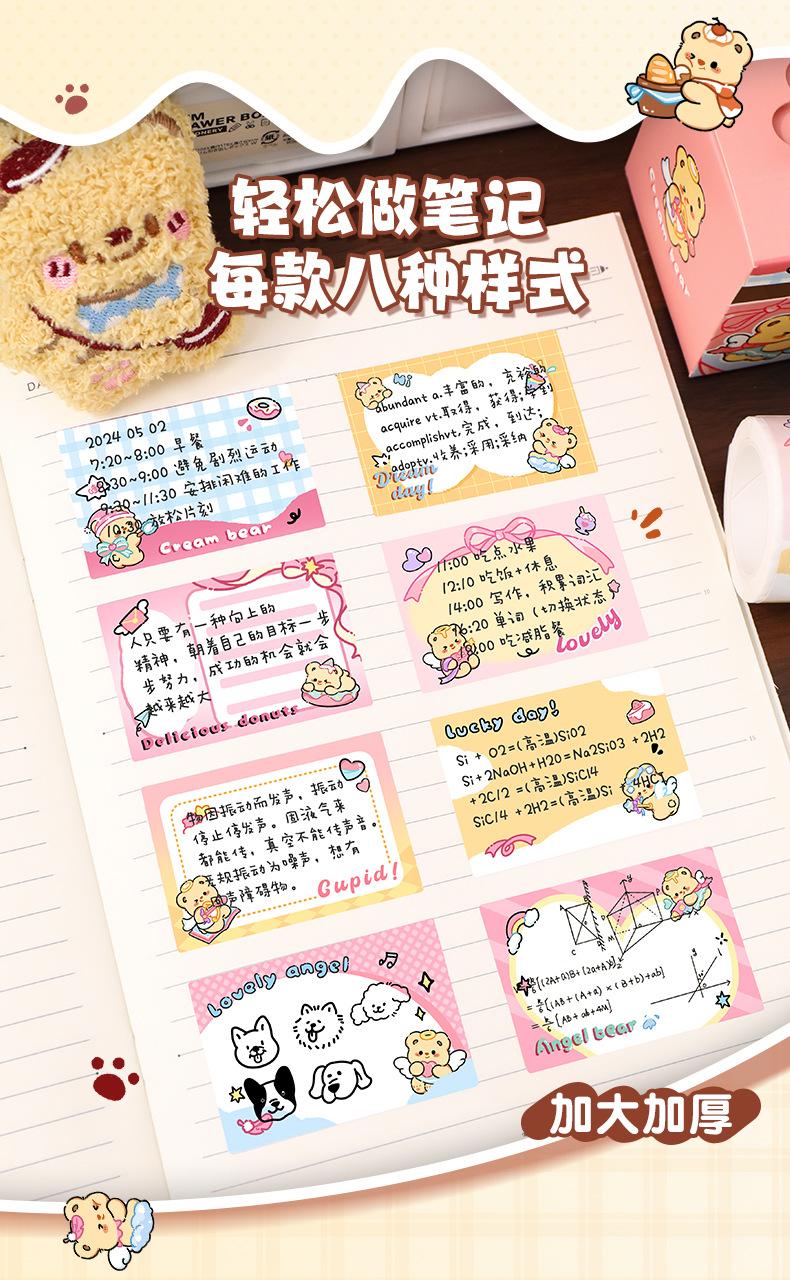 轻松做笔记
每款八种样式
2024 05 02
7:20~8:00 早餐
8:30~9:00 避免剧烈运动
9:30~11:30 安排困难的工作
放松片刻
Cream bear
Hi
abundant a.丰富的,充裕的
acquire vt.取得,获得;学到
accomplishvt.完成,到达;
adoptv.收养;采用;采纳
Dream
day!
人只要有一种向上的
精神,朝着自己的目标一步
步努力,成功的机会就会
越来越大
Delicious donuts
11:00 吃点水果
12:10 吃饭+休息
14:00 写作,积累词汇
16:20 单词(切换状态)
18:00 吃减脂餐
lovely
物因振动而发声,振动
停止停发声。固液气来
都能传,真空不能传声音。
规振动为噪声,想有
声障碍物。
Cupid!
Lucky day!
Si + O2=(高温)SiO2
Si+2NaOH+H2O=Na2SiO3 +2H2
+2C/2 =(高温)SiCl4
SiCl4 +2H2=(高温)Si +4HCl
Lovely angel
[(2A+a)B+(2a+A)
=[(AB+(A+a)×(B+b)+ab]
=[AB+ab+4M]
Angel bear
加大加厚